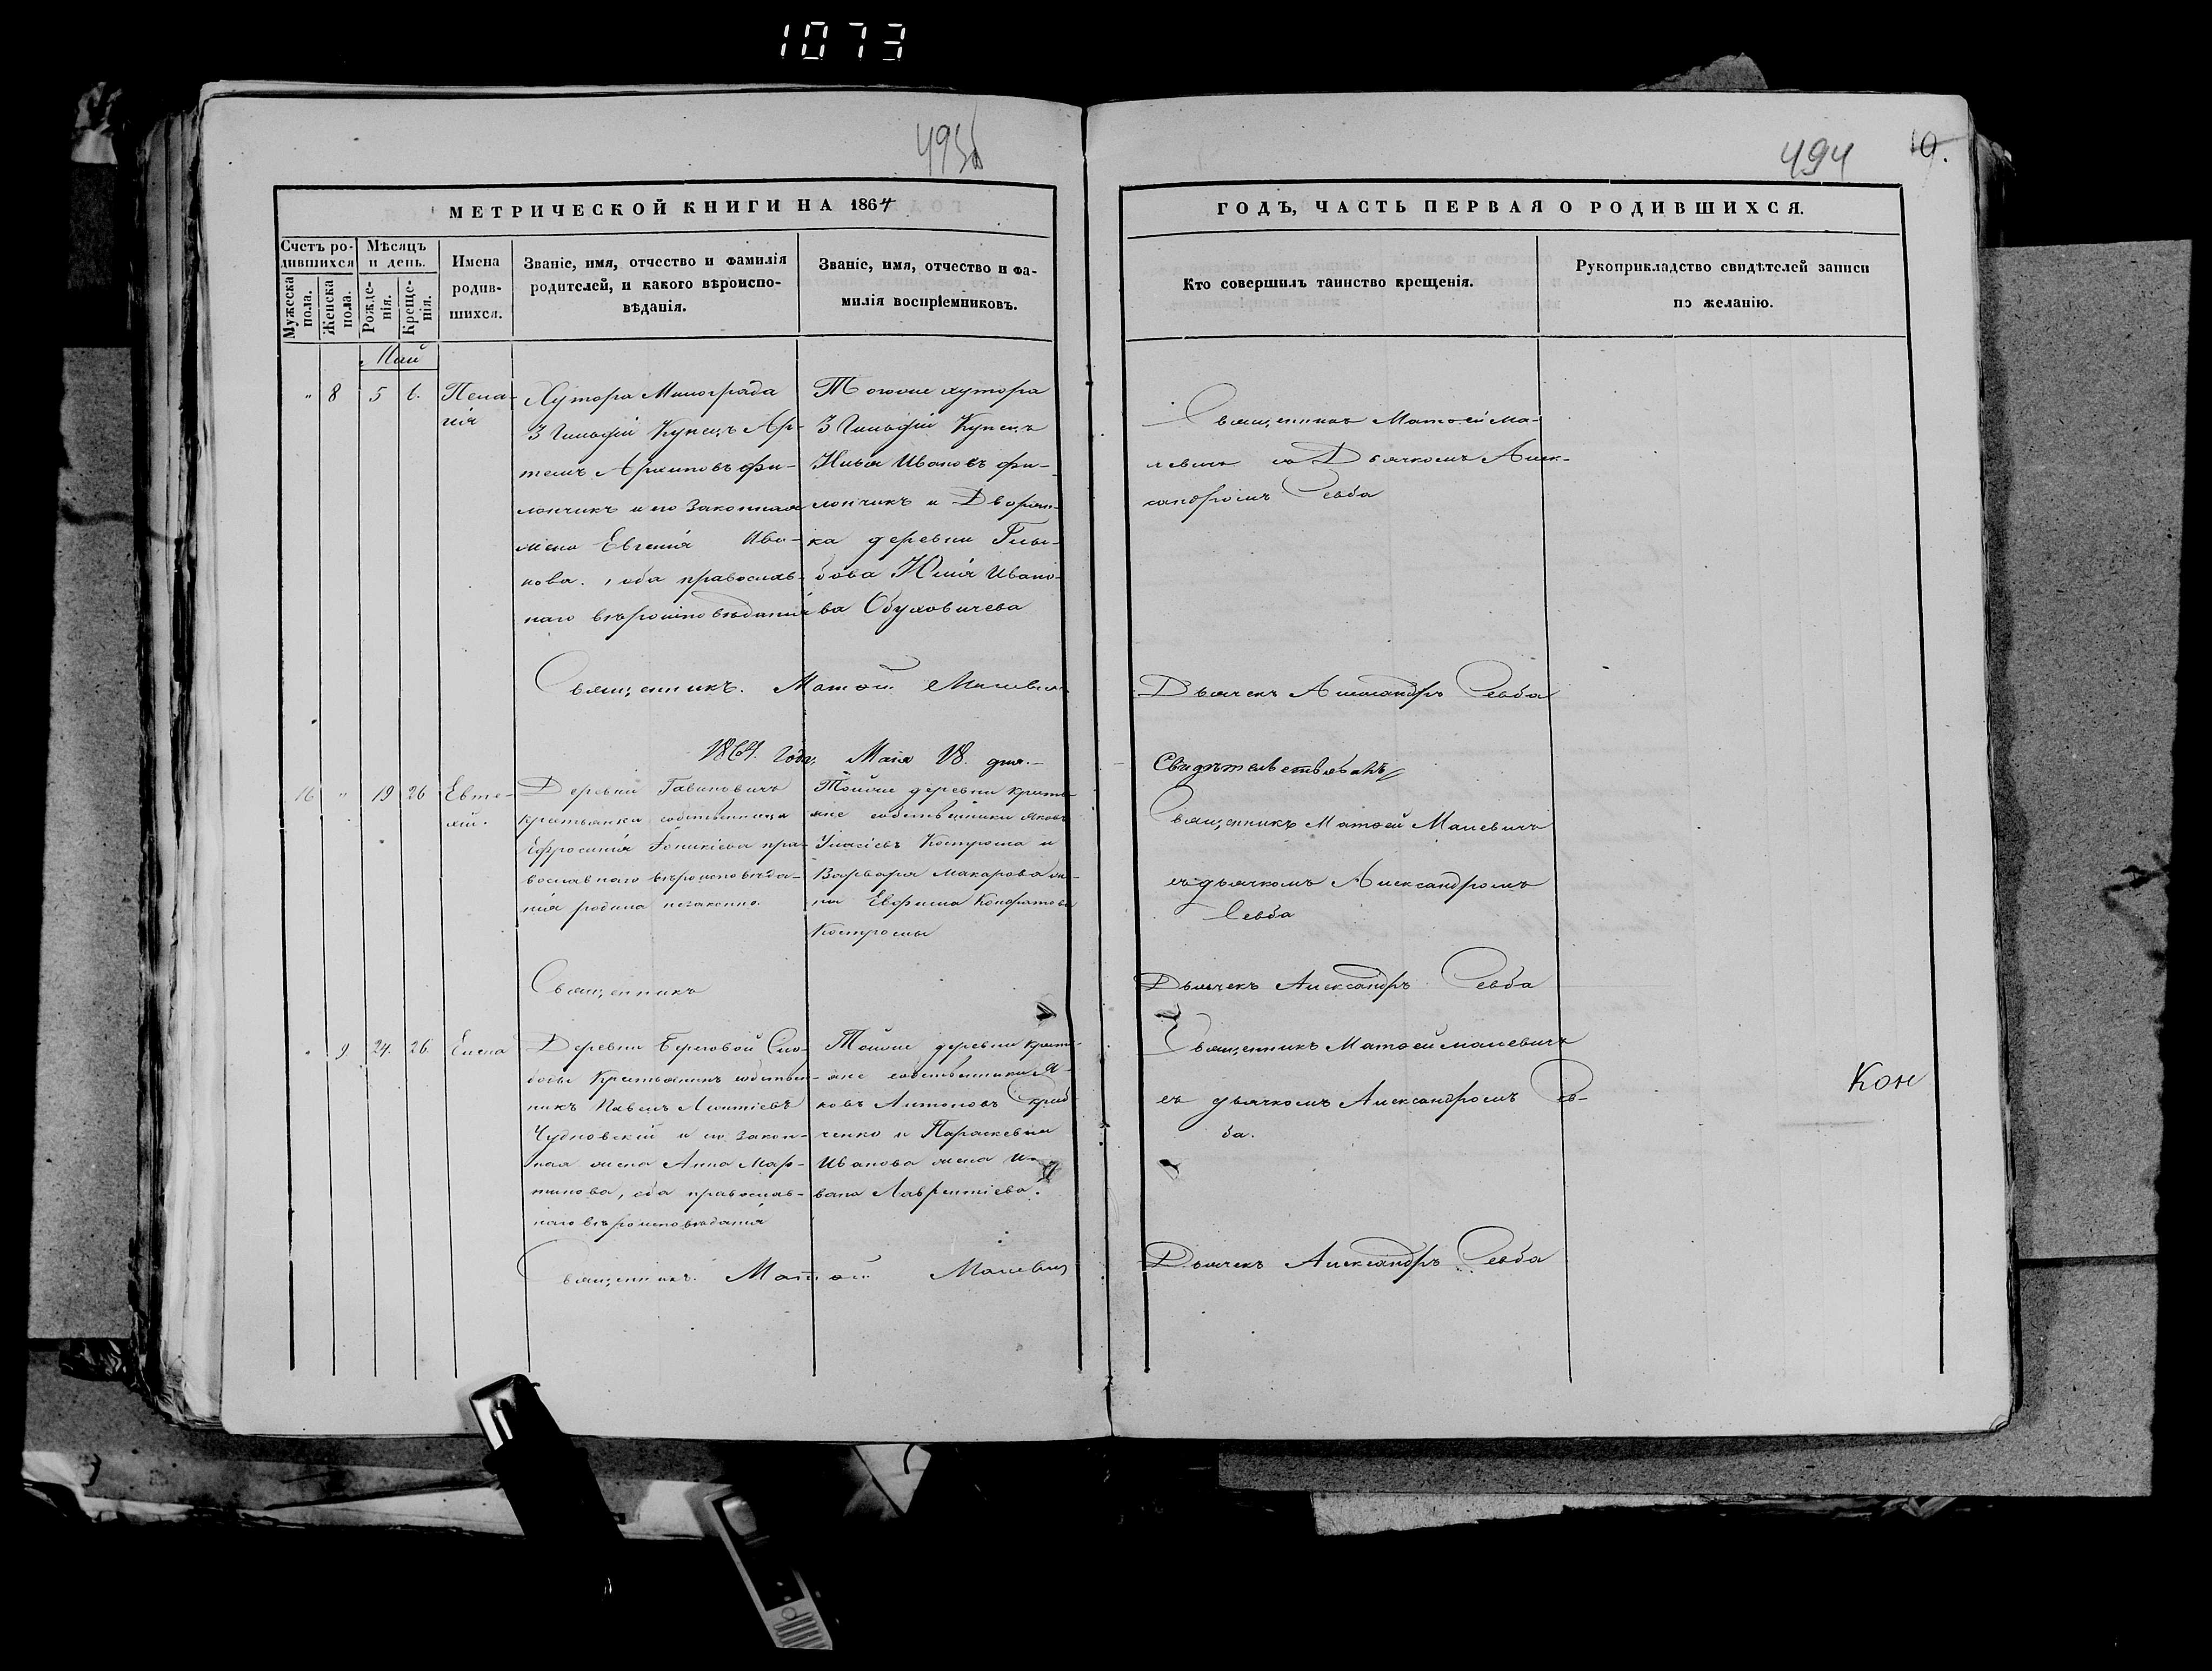 1073
493б
494
10.
МЕТРИЧЕСКОЙ КНИГИ НА 1864
ГОДЪ, ЧАСТЬ ПЕРВАЯ О РОДИВШИХСЯ.
Счетъ ро-
дившихся
Мужеска
пола.
Женска
пола.
Мѣсяцъ
и день.
Рожде-
нія.
Креще-
нія.
Имена
родив-
шихся.
Званіе, имя, отчество и фамилія
родителей, и какого вѣроиспо-
вѣданія.
Званіе, имя, отчество и фа-
милія воспріемниковъ.
Кто совершилъ таинство крещенія.
Рукоприкладство свидѣтелей записи
по желанію.
Май
" 8 5 6. Пела-
гія
Хутора Милограда
3 Гильдіи Купецъ Ар-
темъ Архиповъ Фи-
лончикъ и его законная
жена Евгенія Ива-
нова, оба православ-
наго вѣроисповѣданія
Тогоже хутора
3 Гильдіи Купецъ
Илья Ивановъ Фи-
лончикъ и Дворян-
ка деревни Глы-
бова Юлія Ивано-
ва Обуховичева
Священникъ Матѳей Ма-
левичъ съ Дьячкомъ Алек-
сандромъ Севба
Священникъ. Матѳей Малевич
Дьячекъ Александръ Севба
1864. года, Маія 18. дня.
Свидѣтельствованъ
16 " 19 26 Евти-
хій.
Деревни Гавиновичъ
крестьянка собственница
Ефросинія Іоникіева пра-
вославнаго вѣроисповѣда-
нія родила незаконно.
Тойже деревни кресть-
яне собственники Яковъ
Кострома и
Варвара Макарова же-
на Евфима Кондратова
Костромы
Священникъ Матѳей Малевичъ
съ дьячкомъ Александромъ
Севба
Священникъ
Дьячекъ Александръ Севба
" 9 24. 26. Елена
Деревни Береговой Сло-
боды Крестьянинъ собствен-
никъ Павелъ Леонтіевъ
Чудновскій и его закон-
ная жена Анна Мар-
тинова, оба православ-
наго вѣроисповѣданія
Тойже деревни кресть-
яне собственники Я-
ковъ Антоновъ
ченко и Параскевія
Иванова жена И-
вана Лаврентіева.
Священникъ Матѳей Малевичъ
съ дьячкомъ Александромъ Сев-
ба.
Кон
Священникъ. Матѳей Малевич
Дьячекъ Александръ Севба